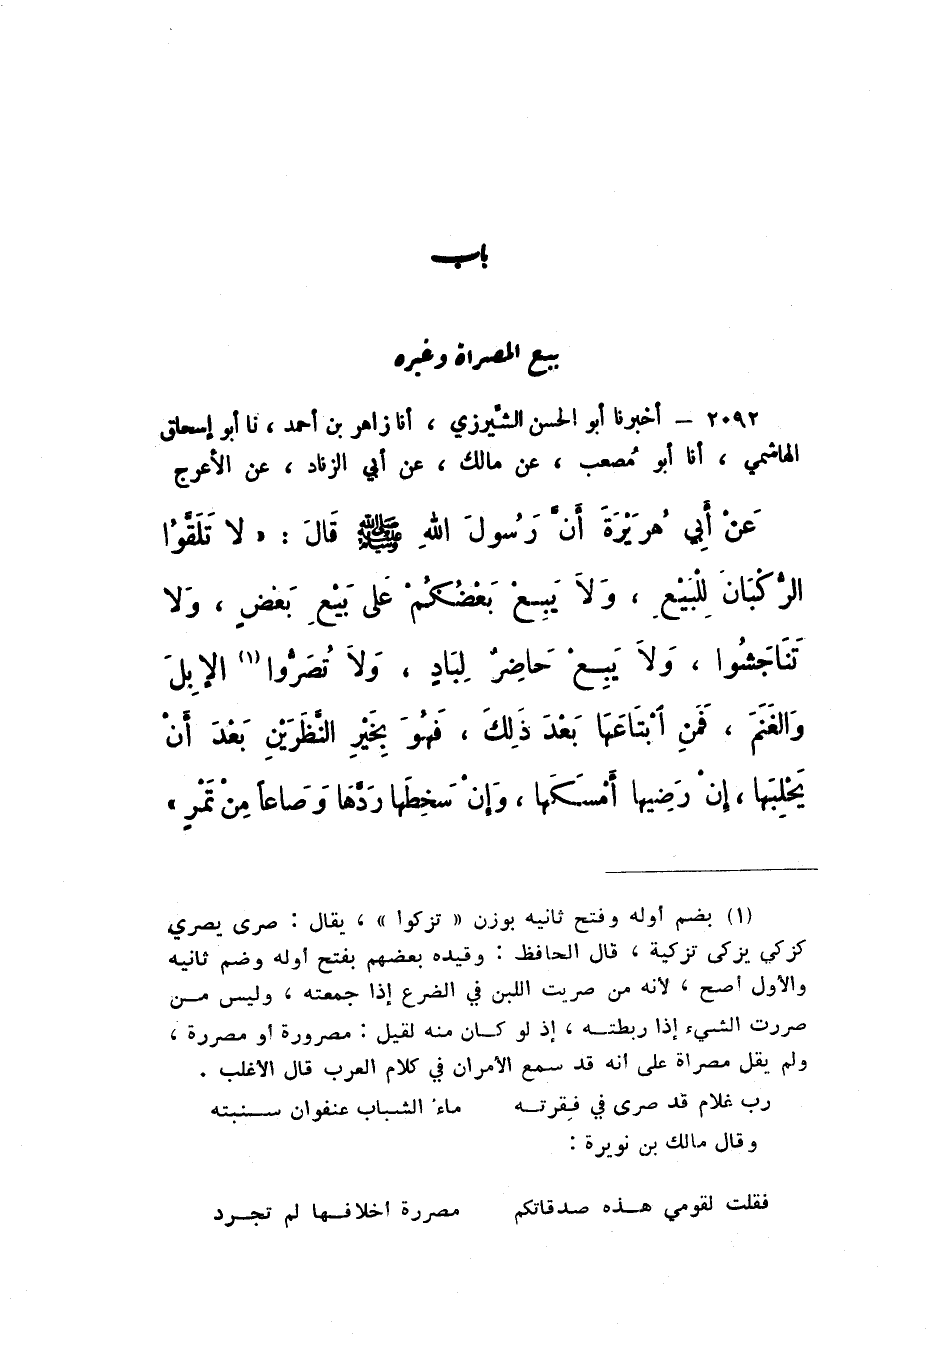 باب
بيع المصراة وغيره
٢٠٩٢ – أخبرنا أبو الحسن الشّيرزي ، أنا زاهر بن أحمد ، نا أبو إسحاق
الهاشمي ، أنا أبو مُصعب ، عن مالك ، عن أبي الزناد ، عن الأعرج
عَنْ أَبِي هُرَيْرَةَ أَنَّ رَسُولَ اللهِ ﷺ قَالَ : « لا تَلَقَّوُا
الرُّكْبَانَ لِلْبَيْعِ ، وَلَا يَبِعْ بَعْضُكُمْ عَلَى بَيْعِ بَعْضٍ ، وَلا
تَنَاجَشُوا ، وَلَا يَبِعْ حَاضِرٌ لِبَادٍ ، وَلَا تُصَرُّوا (١) الإِبِلَ
وَالغَنَمَ ، فَمَنِ ابْتَاعَهَا بَعْدَ ذَلِكَ ، فَهُوَ بِخَيْرِ النَّظَرَيْنِ بَعْدَ أَنْ
يَحْلِبَهَا ، إِنْ رَضِيها أَمْسَكَها ، وَإِنْ سَخِطَها رَدَّهَا وَصَاعاً مِنْ تَمْرٍ »
(١) بضم أوله وفتح ثانيه بوزن « تزكوا » ، يقال : صرى يصري
كزكي يزكى تزكية ، قال الحافظ : وقيده بعضهم بفتح أوله وضم ثانيه
والأول أصح ، لأنه من صريت اللبن في الضرع إذا جمعته ، وليس من
صررت الشيء إذا ربطته ، إذ لو كان منه لقيل : مصرورة أو مصررة ،
ولم يقل مصراة على أنه قد سمع الأمران في كلام العرب قال الأغلب .
رب غلام قد صرى في فقرته ماء الشباب عنفوان سنبته
وقال مالك بن نويرة :
فقلت لقومي هذه صدقاتكم مصررة أخلافها لم تجرد